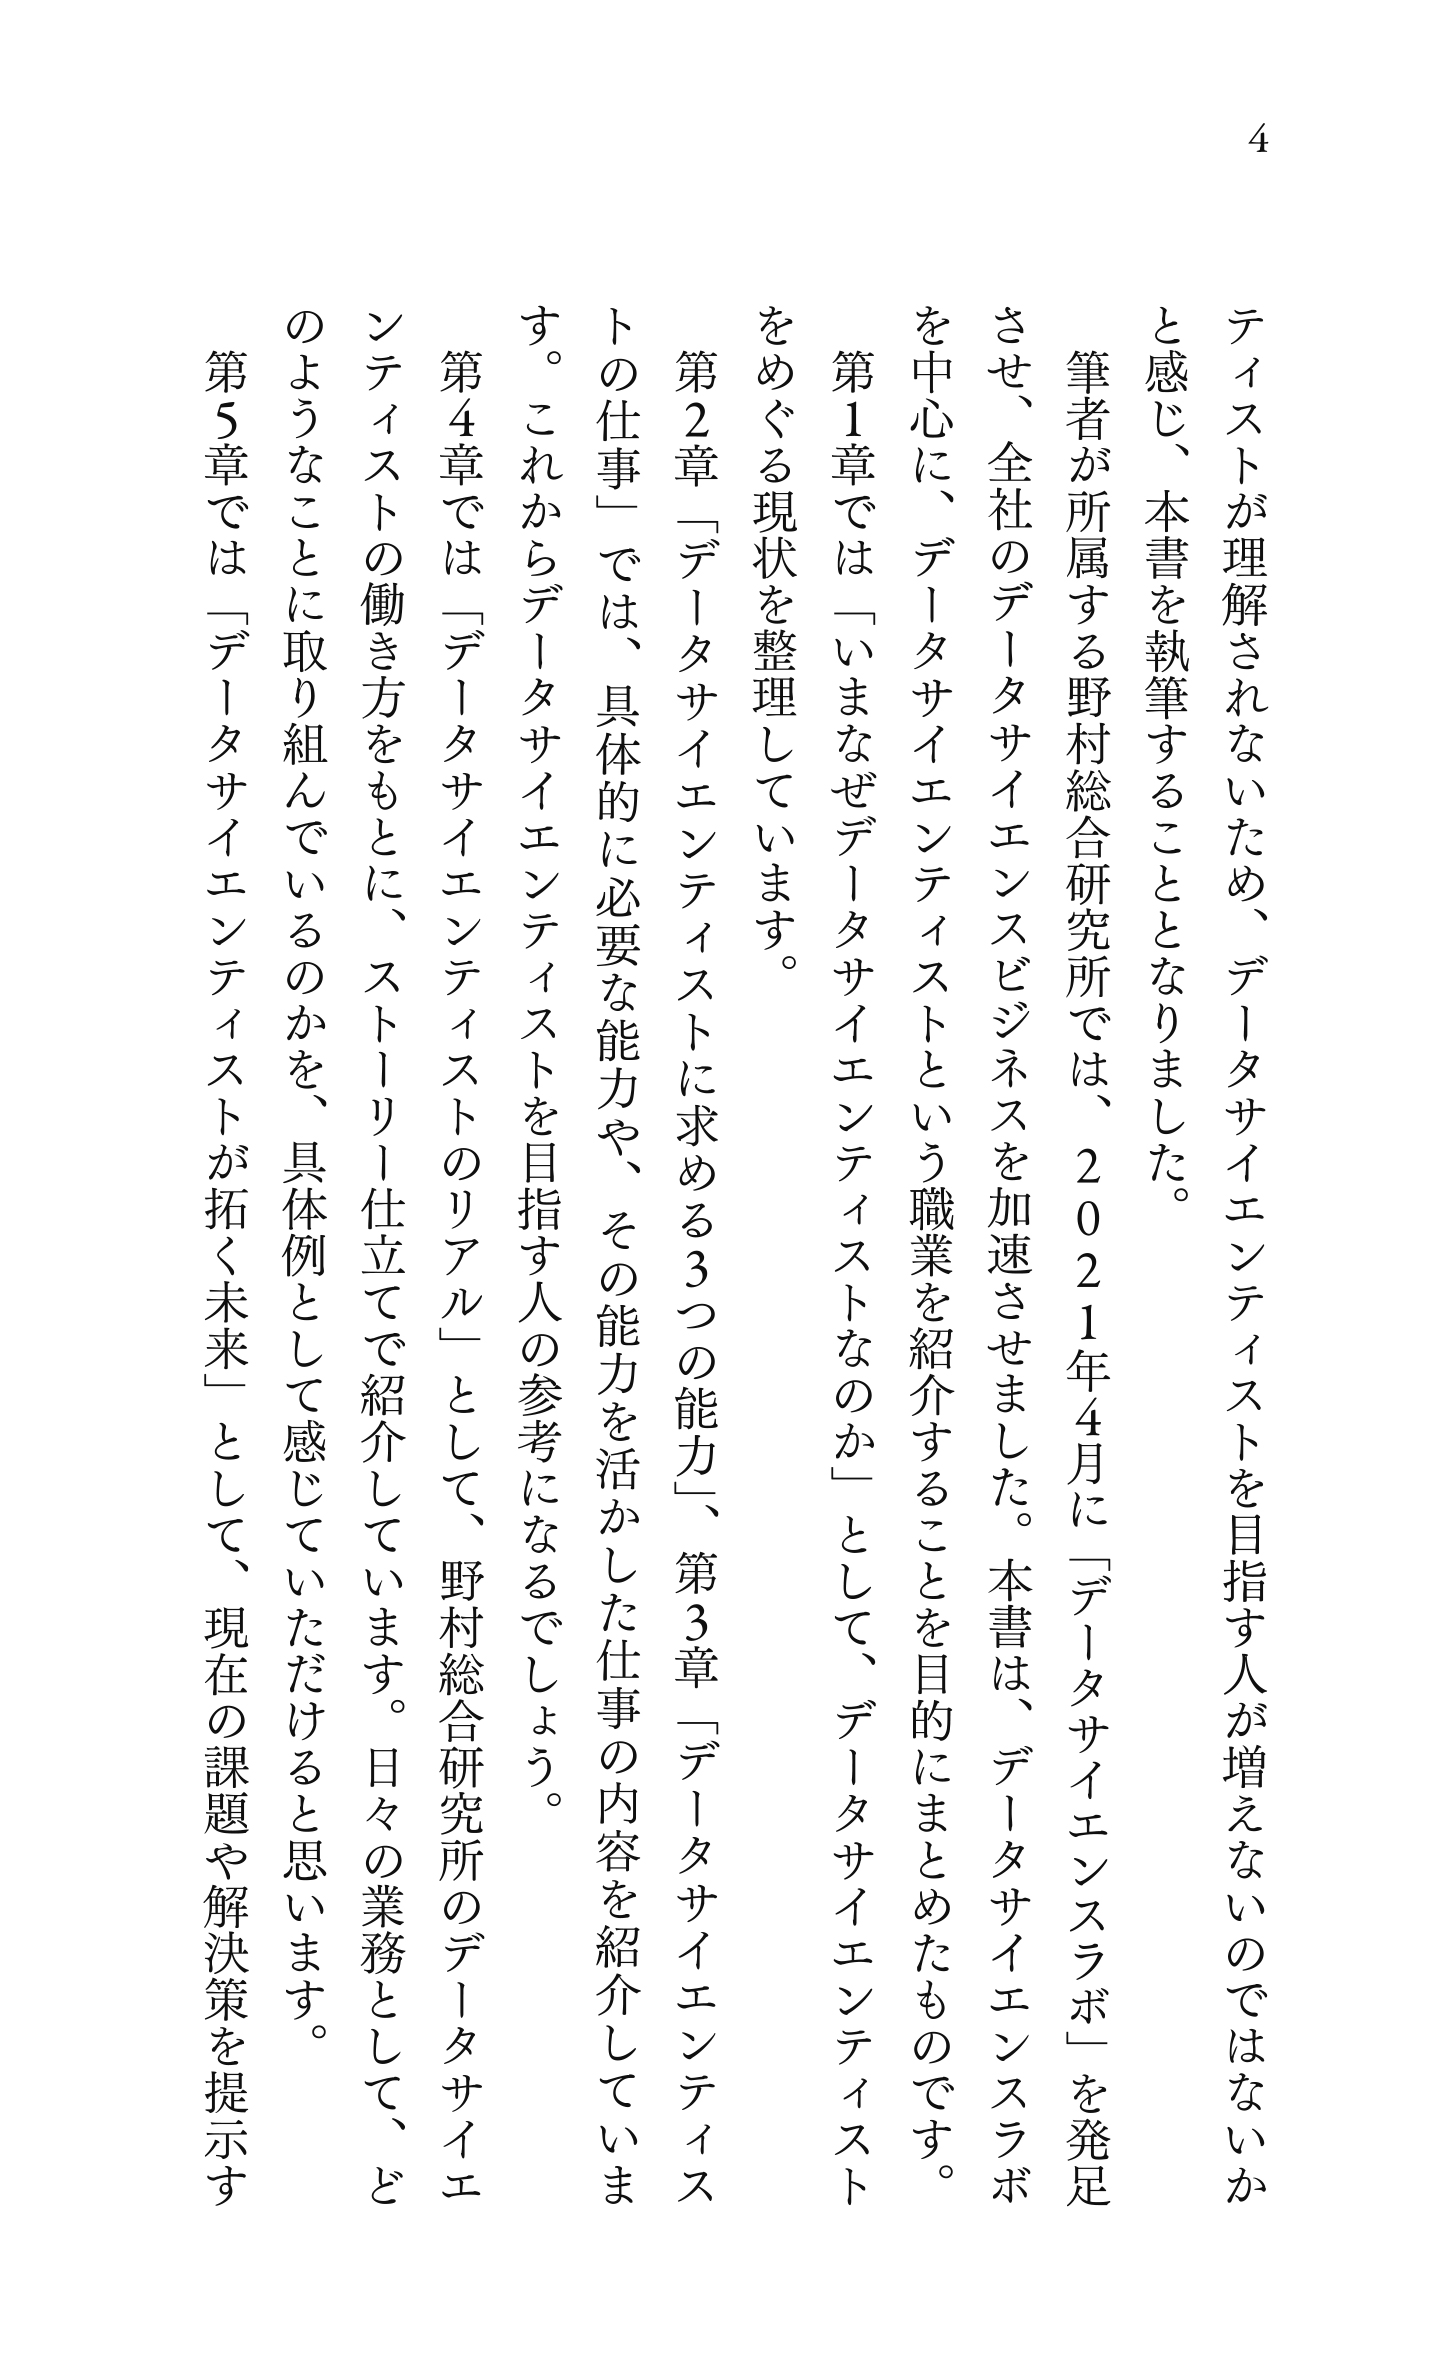 4
ティストが理解されないため、データサイエンティストを目指す人が増えないのではないか
と感じ、本書を執筆することとなりました。
　筆者が所属する野村総合研究所では、2021年4月に「データサイエンスラボ」を発足
させ、全社のデータサイエンスビジネスを加速させました。本書は、データサイエンスラボ
を中心に、データサイエンティストという職業を紹介することを目的にまとめたものです。
　第1章では「いまなぜデータサイエンティストなのか」として、データサイエンティスト
をめぐる現状を整理しています。
　第2章「データサイエンティストに求める3つの能力」、第3章「データサイエンティス
トの仕事」では、具体的に必要な能力や、その能力を活かした仕事の内容を紹介していま
す。これからデータサイエンティストを目指す人の参考になるでしょう。
　第4章では「データサイエンティストのリアル」として、野村総合研究所のデータサイエ
ンティストの働き方をもとに、ストーリー仕立てで紹介しています。日々の業務として、ど
のようなことに取り組んでいるのかを、具体例として感じていただけると思います。
　第5章では「データサイエンティストが拓く未来」として、現在の課題や解決策を提示す